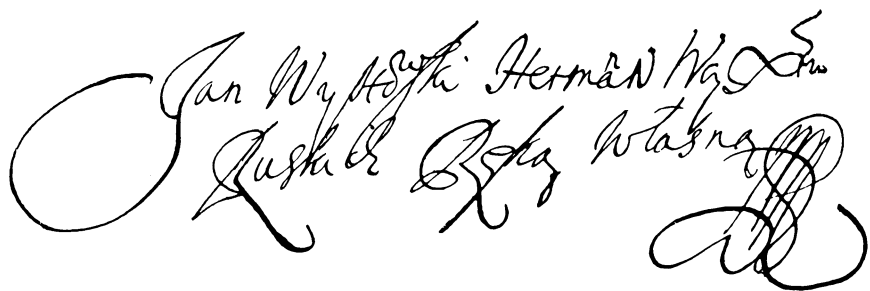 Jan Wyhowski Hetman Woysk
Ruskich Ręką własną